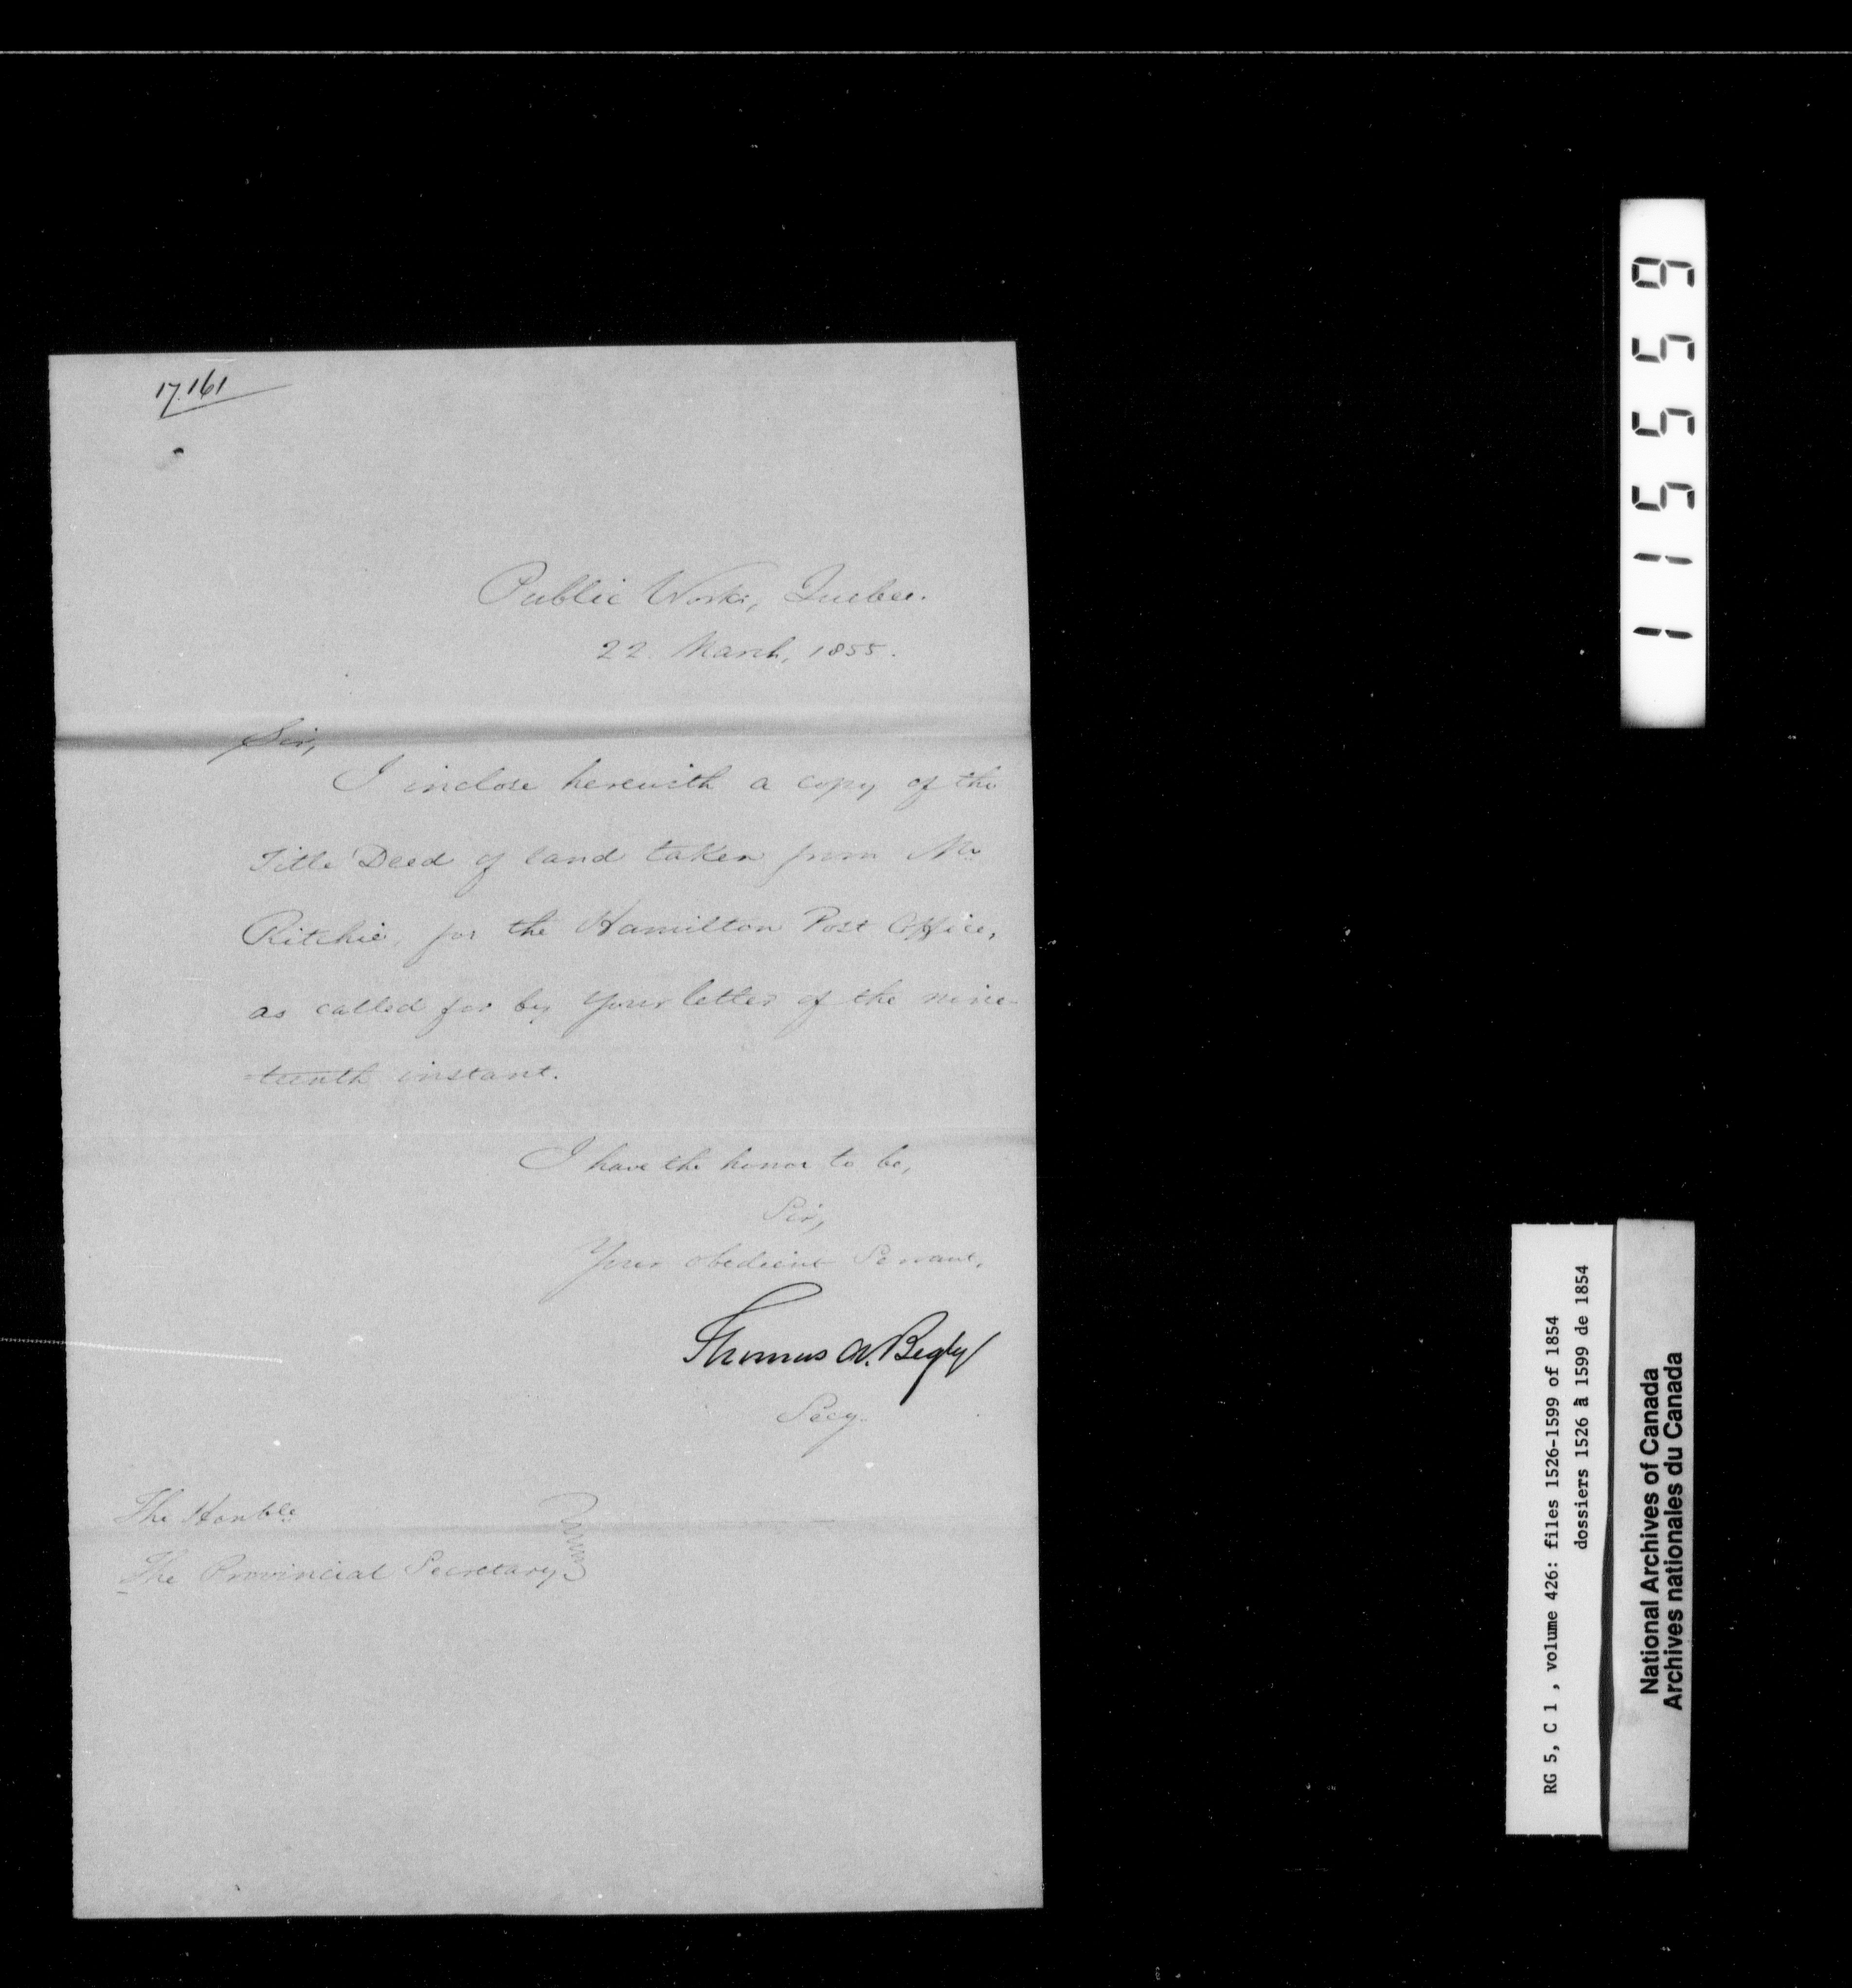 17.161
Public Works, Quebec.
22. March, 1855.
Sir,
I inclose herewith a copy of the
Title Deed of land taken from Mr
Ritchie, for the Hamilton Post Office,
as called for by your letter of the nine-
teenth instant.
I have the honor to be,
Sir,
Your obedient Servant,
Thomas A. Begly
Secy.
The Honble
The Provincial Secretary
115559
RG 5, C 1 , volume 426: files 1526-1599 of 1854
dossiers 1526 à 1599 de 1854
National Archives of Canada
Archives nationales du Canada